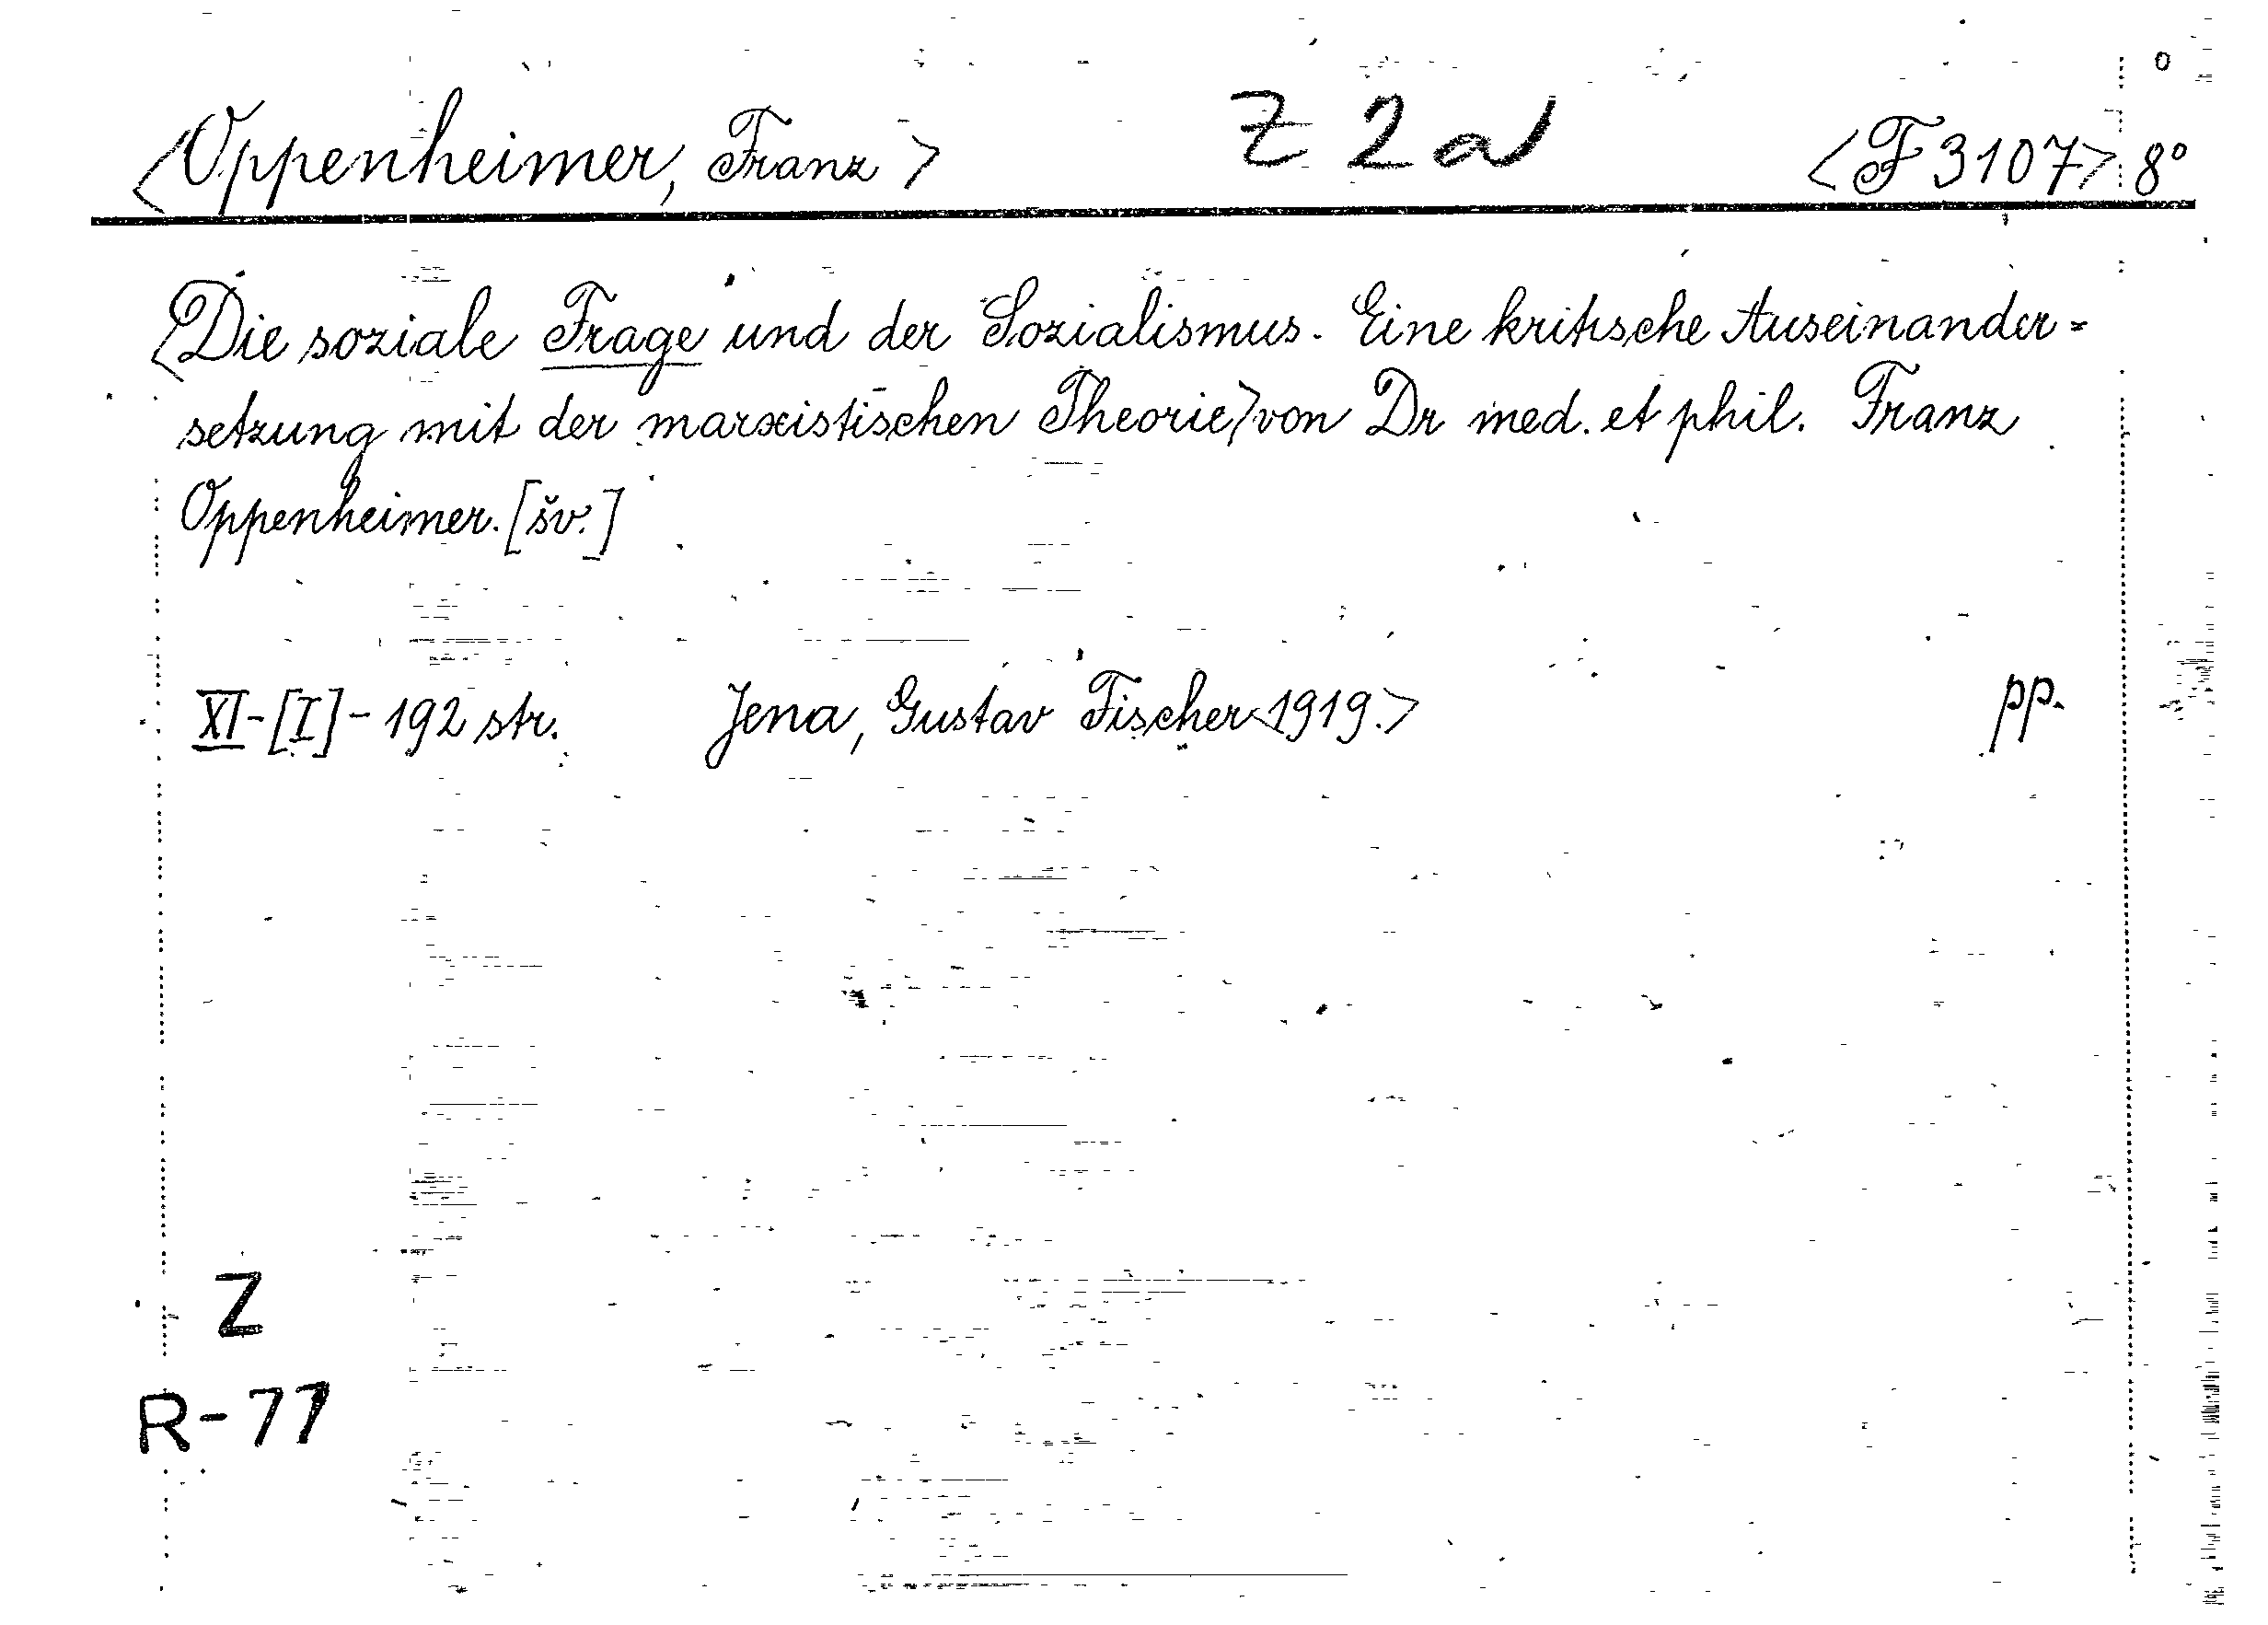 <Oppenheimer, Franz> Z 2a <F 3107> 8°
<Die soziale Frage und der Sozialismus. Eine kritische Auseinander=
setzung mit der marxistischen Theorie> von Dr med. et phil. Franz
Oppenheimer. [šv.]
XI-[I]-192 str. Jena, Gustav Fischer <1919.> pp.
Z
R-77